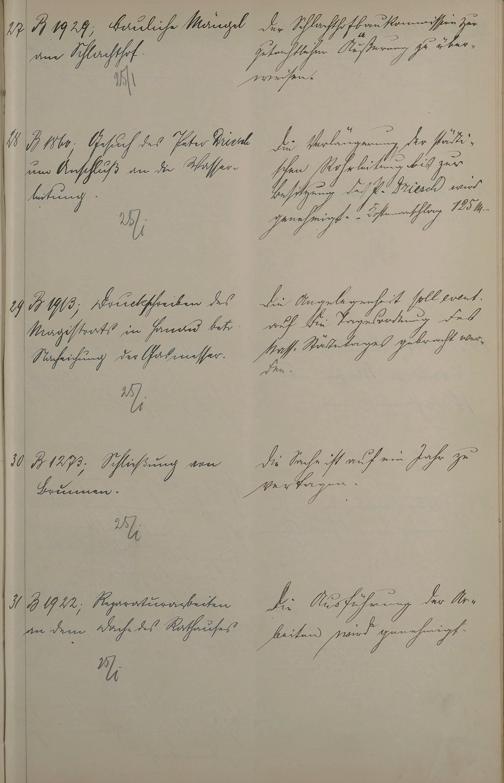 27 B 1929; bauliche Mängel
am Schlachthof.
25/1
der Schlachthofbaukommission zur
gutachtlichen Äußerung zu über-
weisen.
28 B 1860; Gesuch des Peter Driesch
um Anschluß an die Wasser-
leitung.
25/I
Die Verlängerung der städti-
schen Rohrleitung bis zur
Besitzung des P. Driesch wird
genehmigt. Kostenanschlag 125 M.
29 B 1913; Druckschreiben des
Magistrats in Hanau betr.
Nacheichung der Gasmesser.
25/I
Die Angelegenheit soll event.
auf die Tagesordnung des
Nass. Städtetages gebracht wer-
den.
30 B 1273; Schließung von
Brunnen.
25/I
Die Sache ist auf ein Jahr zu
vertagen.
31 B 1922; Reparaturarbeiten
an dem Dache des Rathauses
25/I
Die Ausführung der Ar-
beiten wird genehmigt.